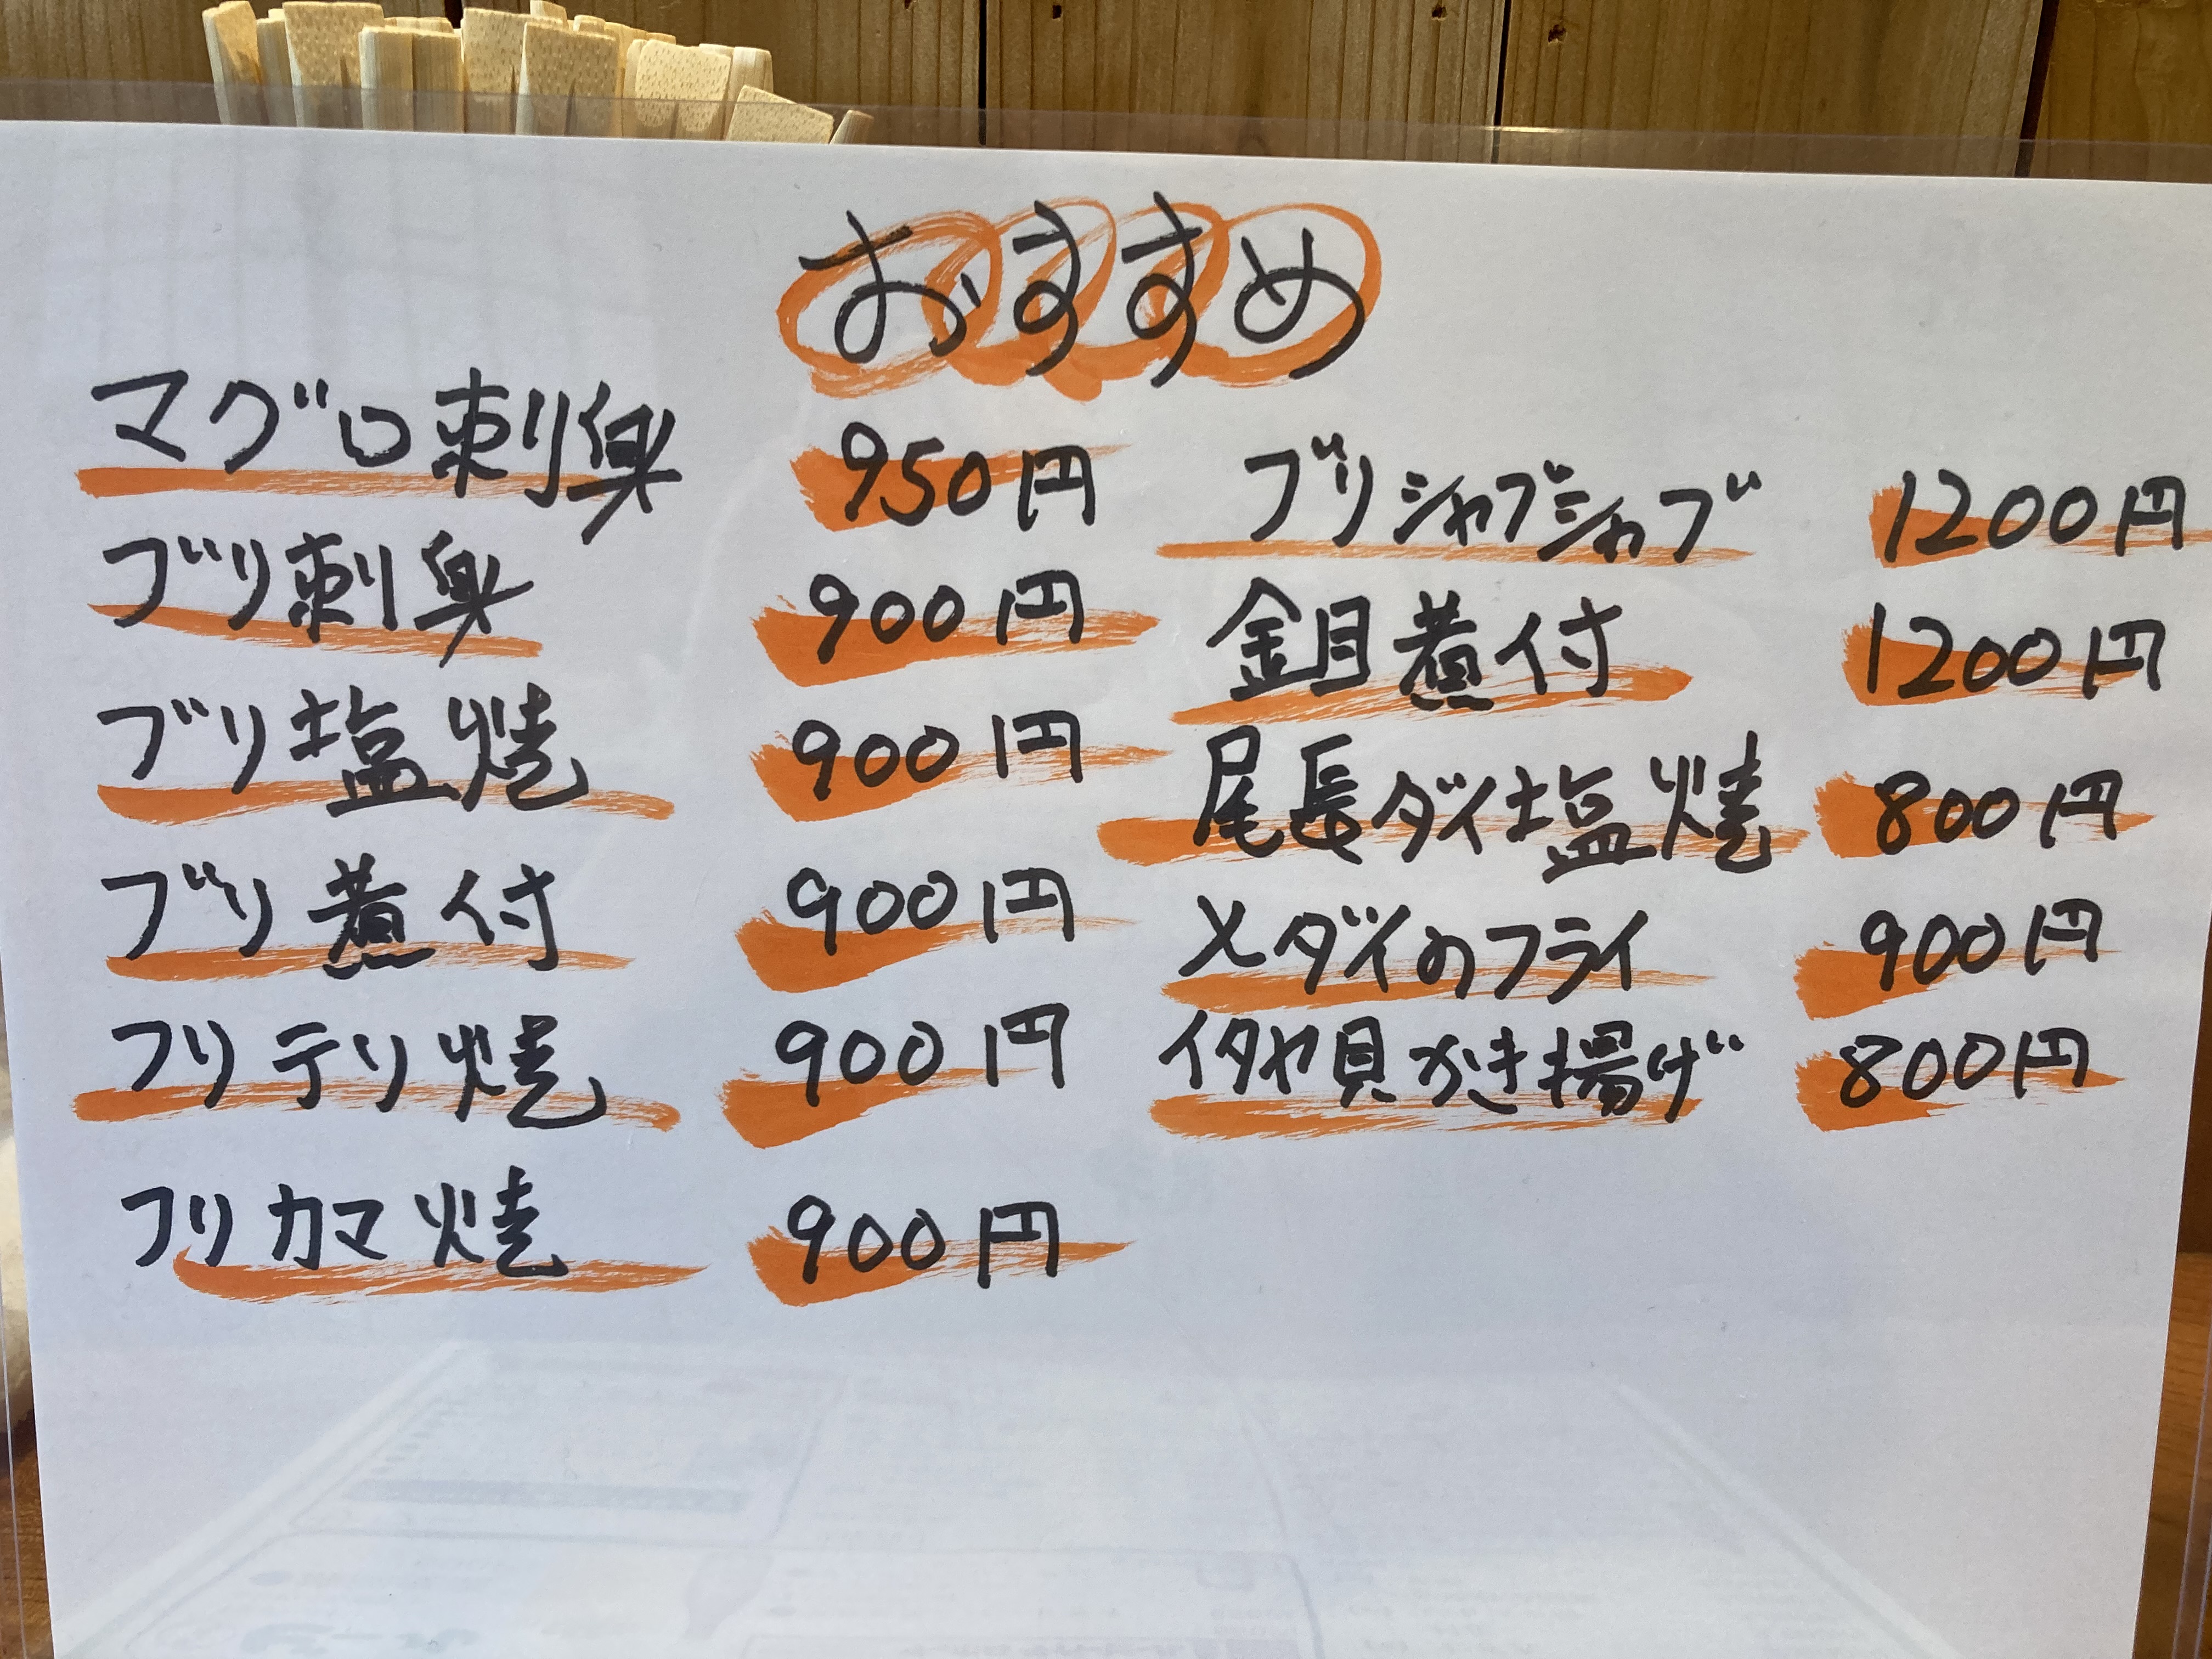 おすすめ
マグロ刺身 950円
ブリ刺身 900円
ブリ塩焼 900円
ブリ煮付 900円
フリテリ焼 900円
フリカマ焼 900円
ブリシャブシャブ 1200円
金目煮付 1200円
尾長ダイ塩焼 800円
メダイのフライ 900円
イタヤ貝かき揚げ 800円